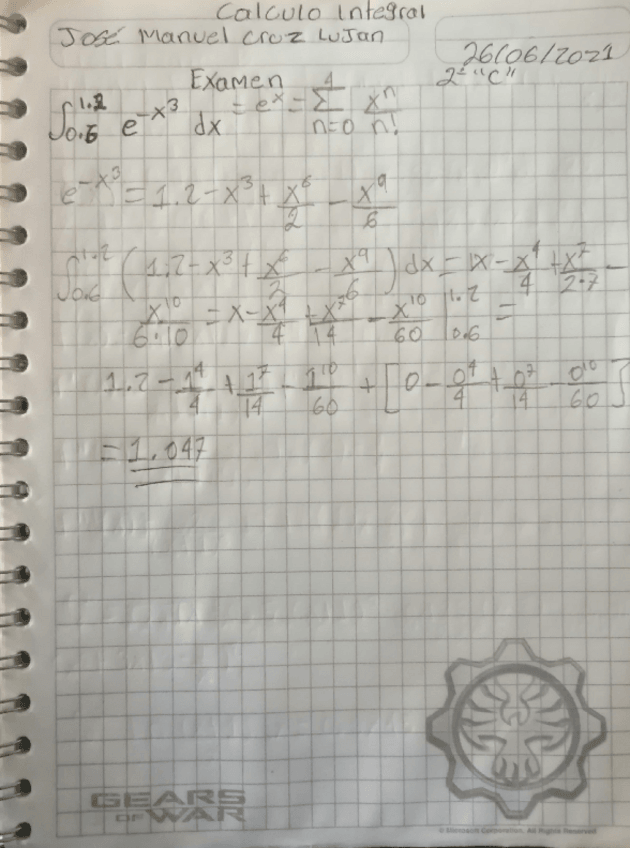 Calculo Integral
José Manuel Cruz Lujan
26/06/2021
Examen 2º "C"
∫_{0.6}^{1.2} e^{-x^3} dx = e^x = Σ_{n=0}^{4} x^n/n!
e^{-x^3} = 1.2 - x^3 + x^6/2 - x^9/6
∫_{0.6}^{1.2} (1.2 - x^3 + x^6/2 - x^9/6) dx = 1x - x^4/4 + x^7/2·7 -
x^10/6·10 = x - x^4/4 + x^7/14 - x^10/60 |_{0.6}^{1.2} =
1.2 - 1^4/4 + 1^7/14 - 1^10/60 + [0 - 0^4/4 + 0^7/14 - 0^10/60]
= 1.047
GEARS
OF WAR
© Microsoft Corporation. All Rights Reserved